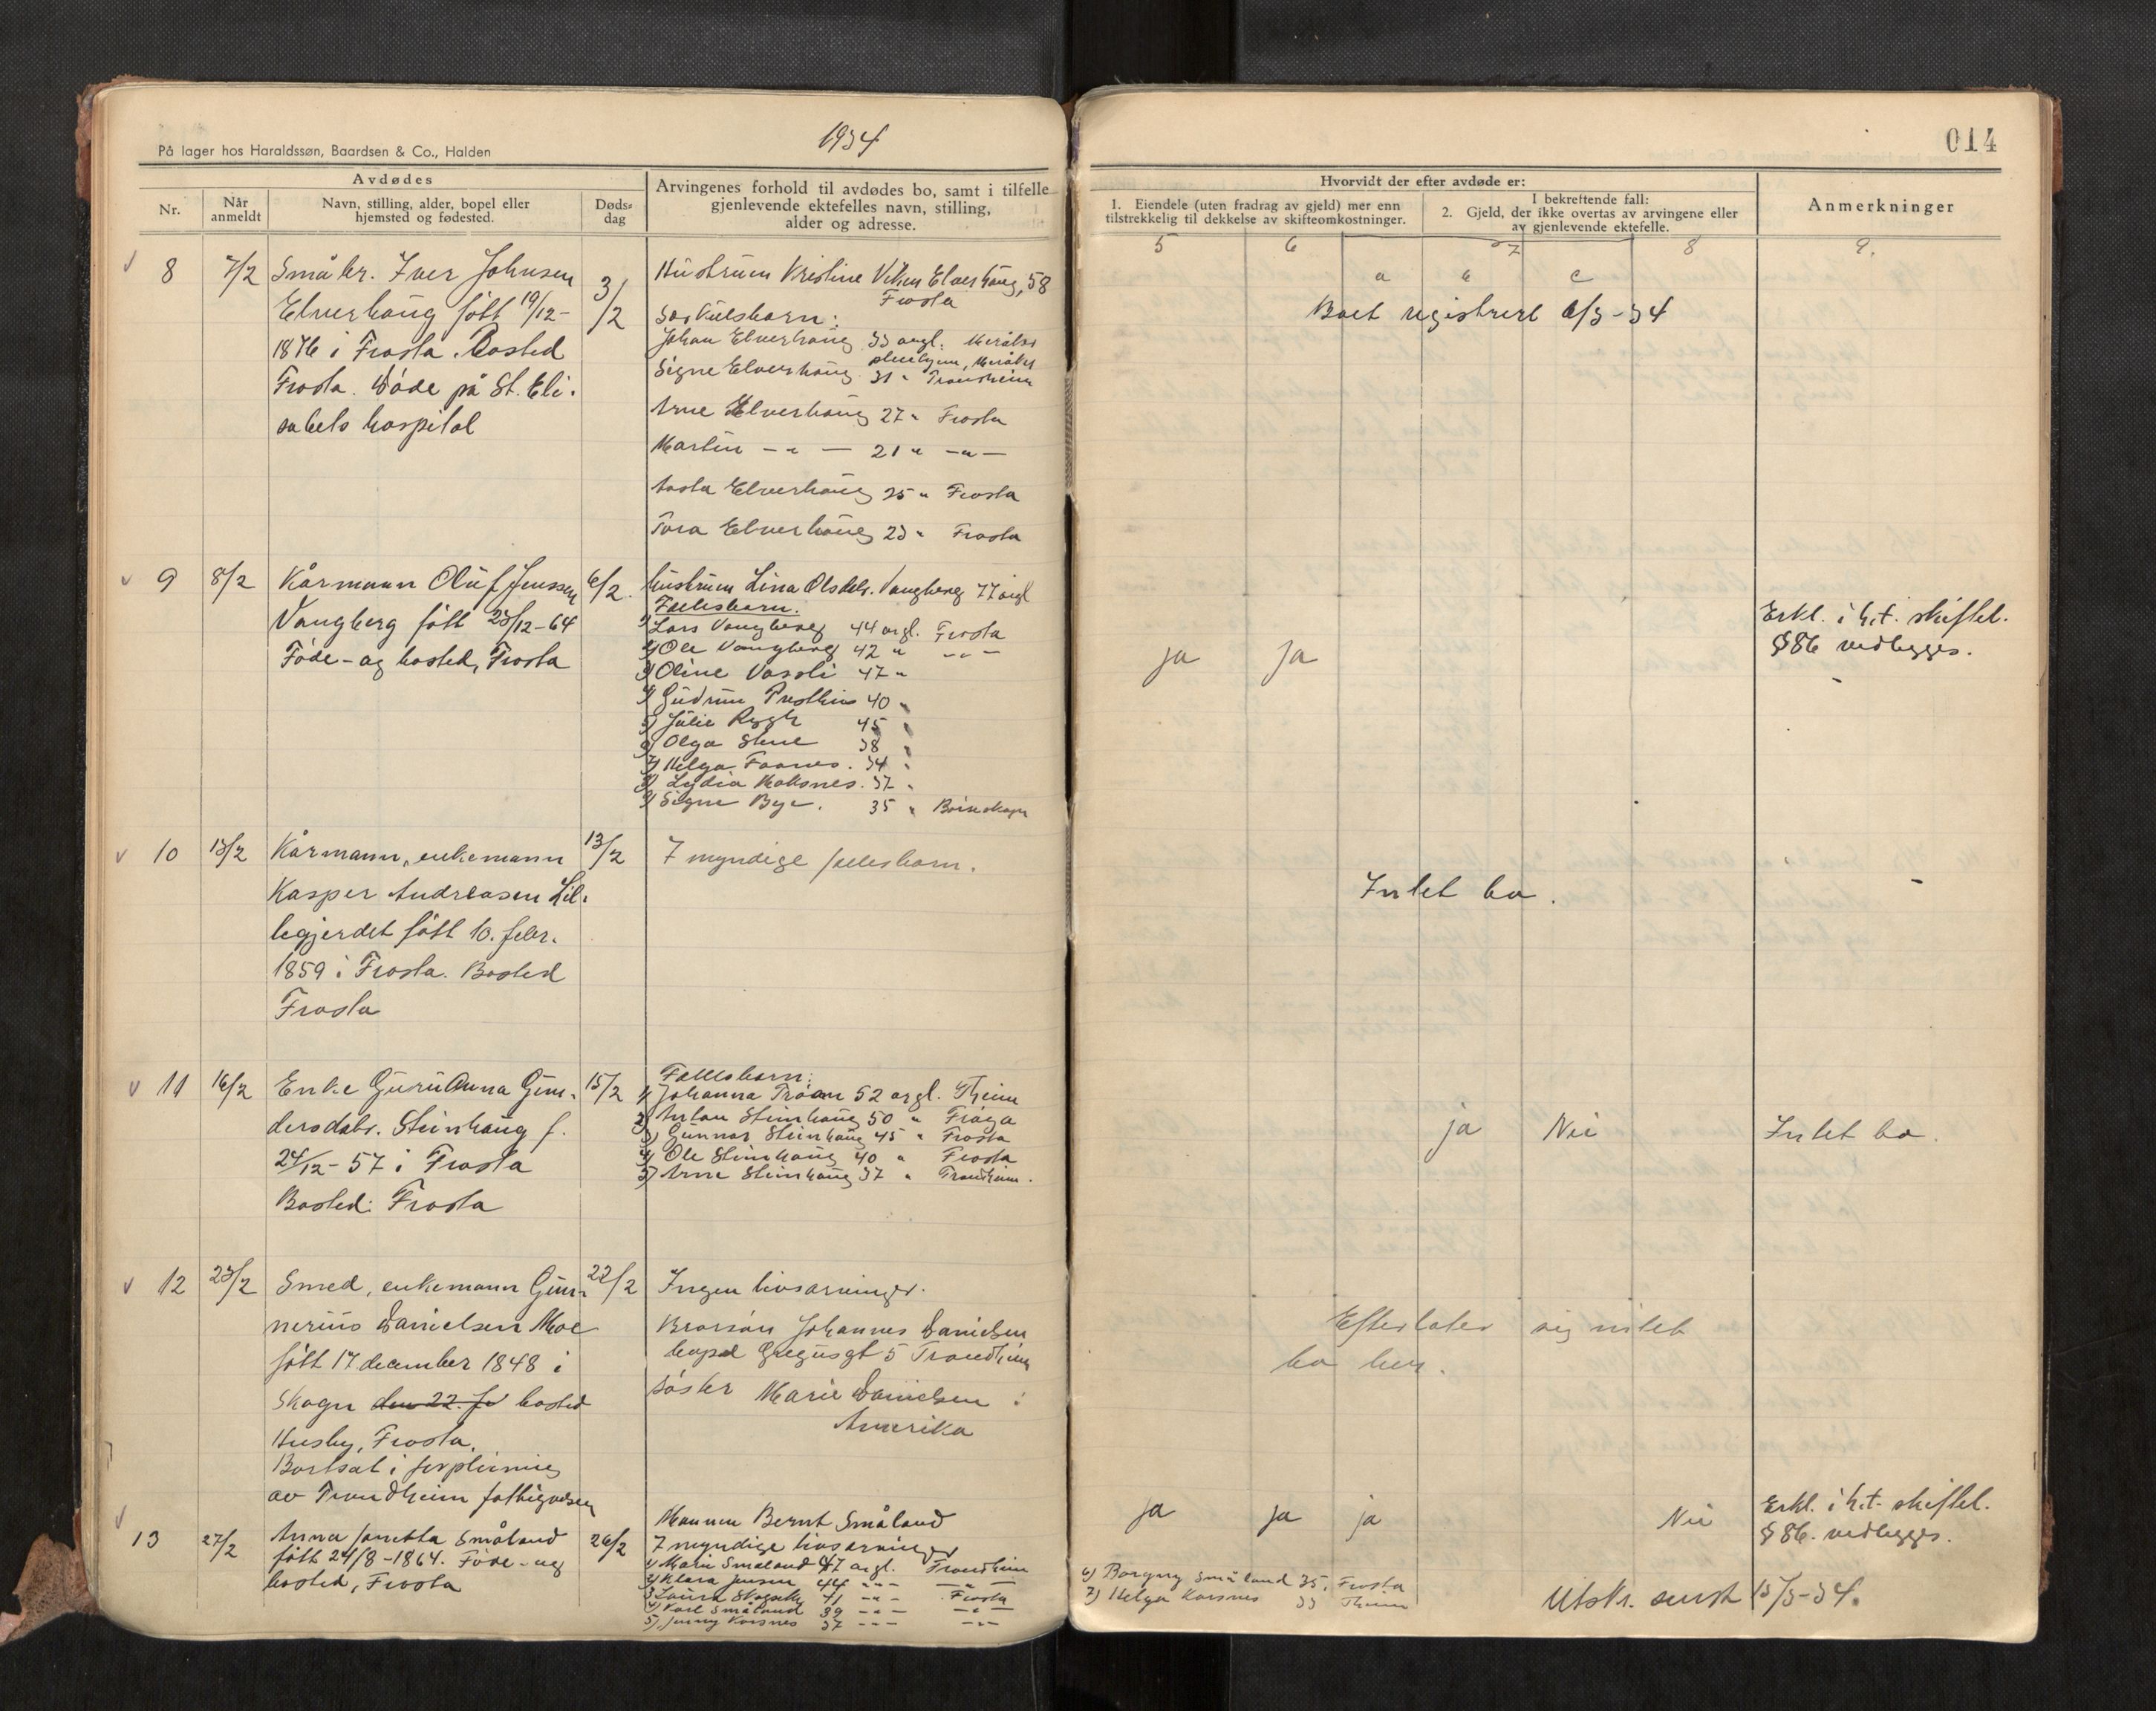 1934
På lager hos Haraldssøn, Baardsen & Co., Halden
Avdødes
Nr.
Når anmeldt
Navn, stilling, alder, bopel eller hjemsted og fødested.
Døds-dag
Arvingenes forhold til avdødes bo, samt i tilfelle
gjenlevende ektefelles navn, stilling,
alder og adresse.
8 7/2 Småbr. Iver Johnsen 3/2
Elverhaug født 19/12-
1876 i Frosta. Bosted
Frosta. Døde på St. Eli-
sabets hospital
Hustruen Kristine Elverhaug, 58
Frosta
Særkulsbarn:
Johan Elverhaug 33 årgl. Meråker
Signe Elverhaug 31 " Trondheim
Arne Elverhaug 27 " Frosta
Martin - " - 21 " - " -
Aasta Elverhaug 25 " Frosta
Tora Elverhaug 23 " Frosta
9 8/2 Kårmann Oluf Jenssen 6/2.
Vangberg født 23/12-64
Føde- og bosted, Frosta
hustruen Lina Olsdtr. Vangberg 77 årgl
Fellesbarn.
1) Lars Vangberg 44 årgl. Frosta
2) Ole Vangberg 42 " - " -
3) Oline Vasoli 47 "
4) Gudrun 40 "
5) Julie Rygh 45 "
6) Olga 38 "
7) Helga Faanes. 34 "
8) Lydia Moksnes. 37 "
9) Signe Bye. 35 "
10 13/2 Kårmann, enkemann 13/2
Kasper Andreasen Lil-
legjerdet født 10. febr.
1859 i Frosta. Bosted
Frosta
7 myndige fellesbarn.
11 16/2 Enke Guruanna Gun- 15/2
dersdatr. Steinhaug f.
24/12-57 i Frosta
Bosted: Frosta
Fellesbarn:
1) Johanna Tróan 52 årgl. Theim
2) Anton Steinhaug 50 "
3) Gunnar Steinhaug 45 " Frosta
4) Ole Steinhaug 40 " Frosta
5) Arne Steinhaug 37 " Trondheim.
12 23/2 Smed, enkemann Gun- 22/2
nerius Danielsen Moe
født 17 december 1848 i
Skogn den 22. fe bosted
Husby, Frosta.
Bortsat i forpleining
av Trondheim fattigvesen
Ingen livsarvinger.
Brorsøn Johannes Danielsen
bopel gt 5 Trondheim
søster Marie Danielsen i
Amerika
13 27/2 Anna Småland 26/2
født 24/8-1864. Føde- og
bosted, Frosta
Mannen Bernt Småland
7 myndige livsarvinger
1) Marie Småland 47 årgl. Trondheim
2) Klara Jensen 44 - " - - " -
3) Laura 41 - " - Frosta
4) Karl Småland 39 - " - - " -
5) Jenny Korsnes 37 - " - - " -
014
Hvorvidt der efter avdøde er:
1. Eiendele (uten fradrag av gjeld) mer enn
tilstrekkelig til dekkelse av skifteomkostninger.
I bekreftende fall:
2. Gjeld, der ikke overtas av arvingene eller
av gjenlevende ektefelle.
Anmerkninger
5 6 7 8 9.
a b c
Boet registrert 6/3-34
ja ja
Erkl. i h.t. skiftel.
§86 vedlegges.
Intet bo.
ja Nei Intet bo.
Efterlater sig intet
bo her.
ja ja ja Nei
Erkl. i h.t. skiftel.
§86. vedlegges.
6) Borgny Småland 35, Frosta
7) Helga Korsnes 33 Theim
Utskr. sendt 15/3-34.